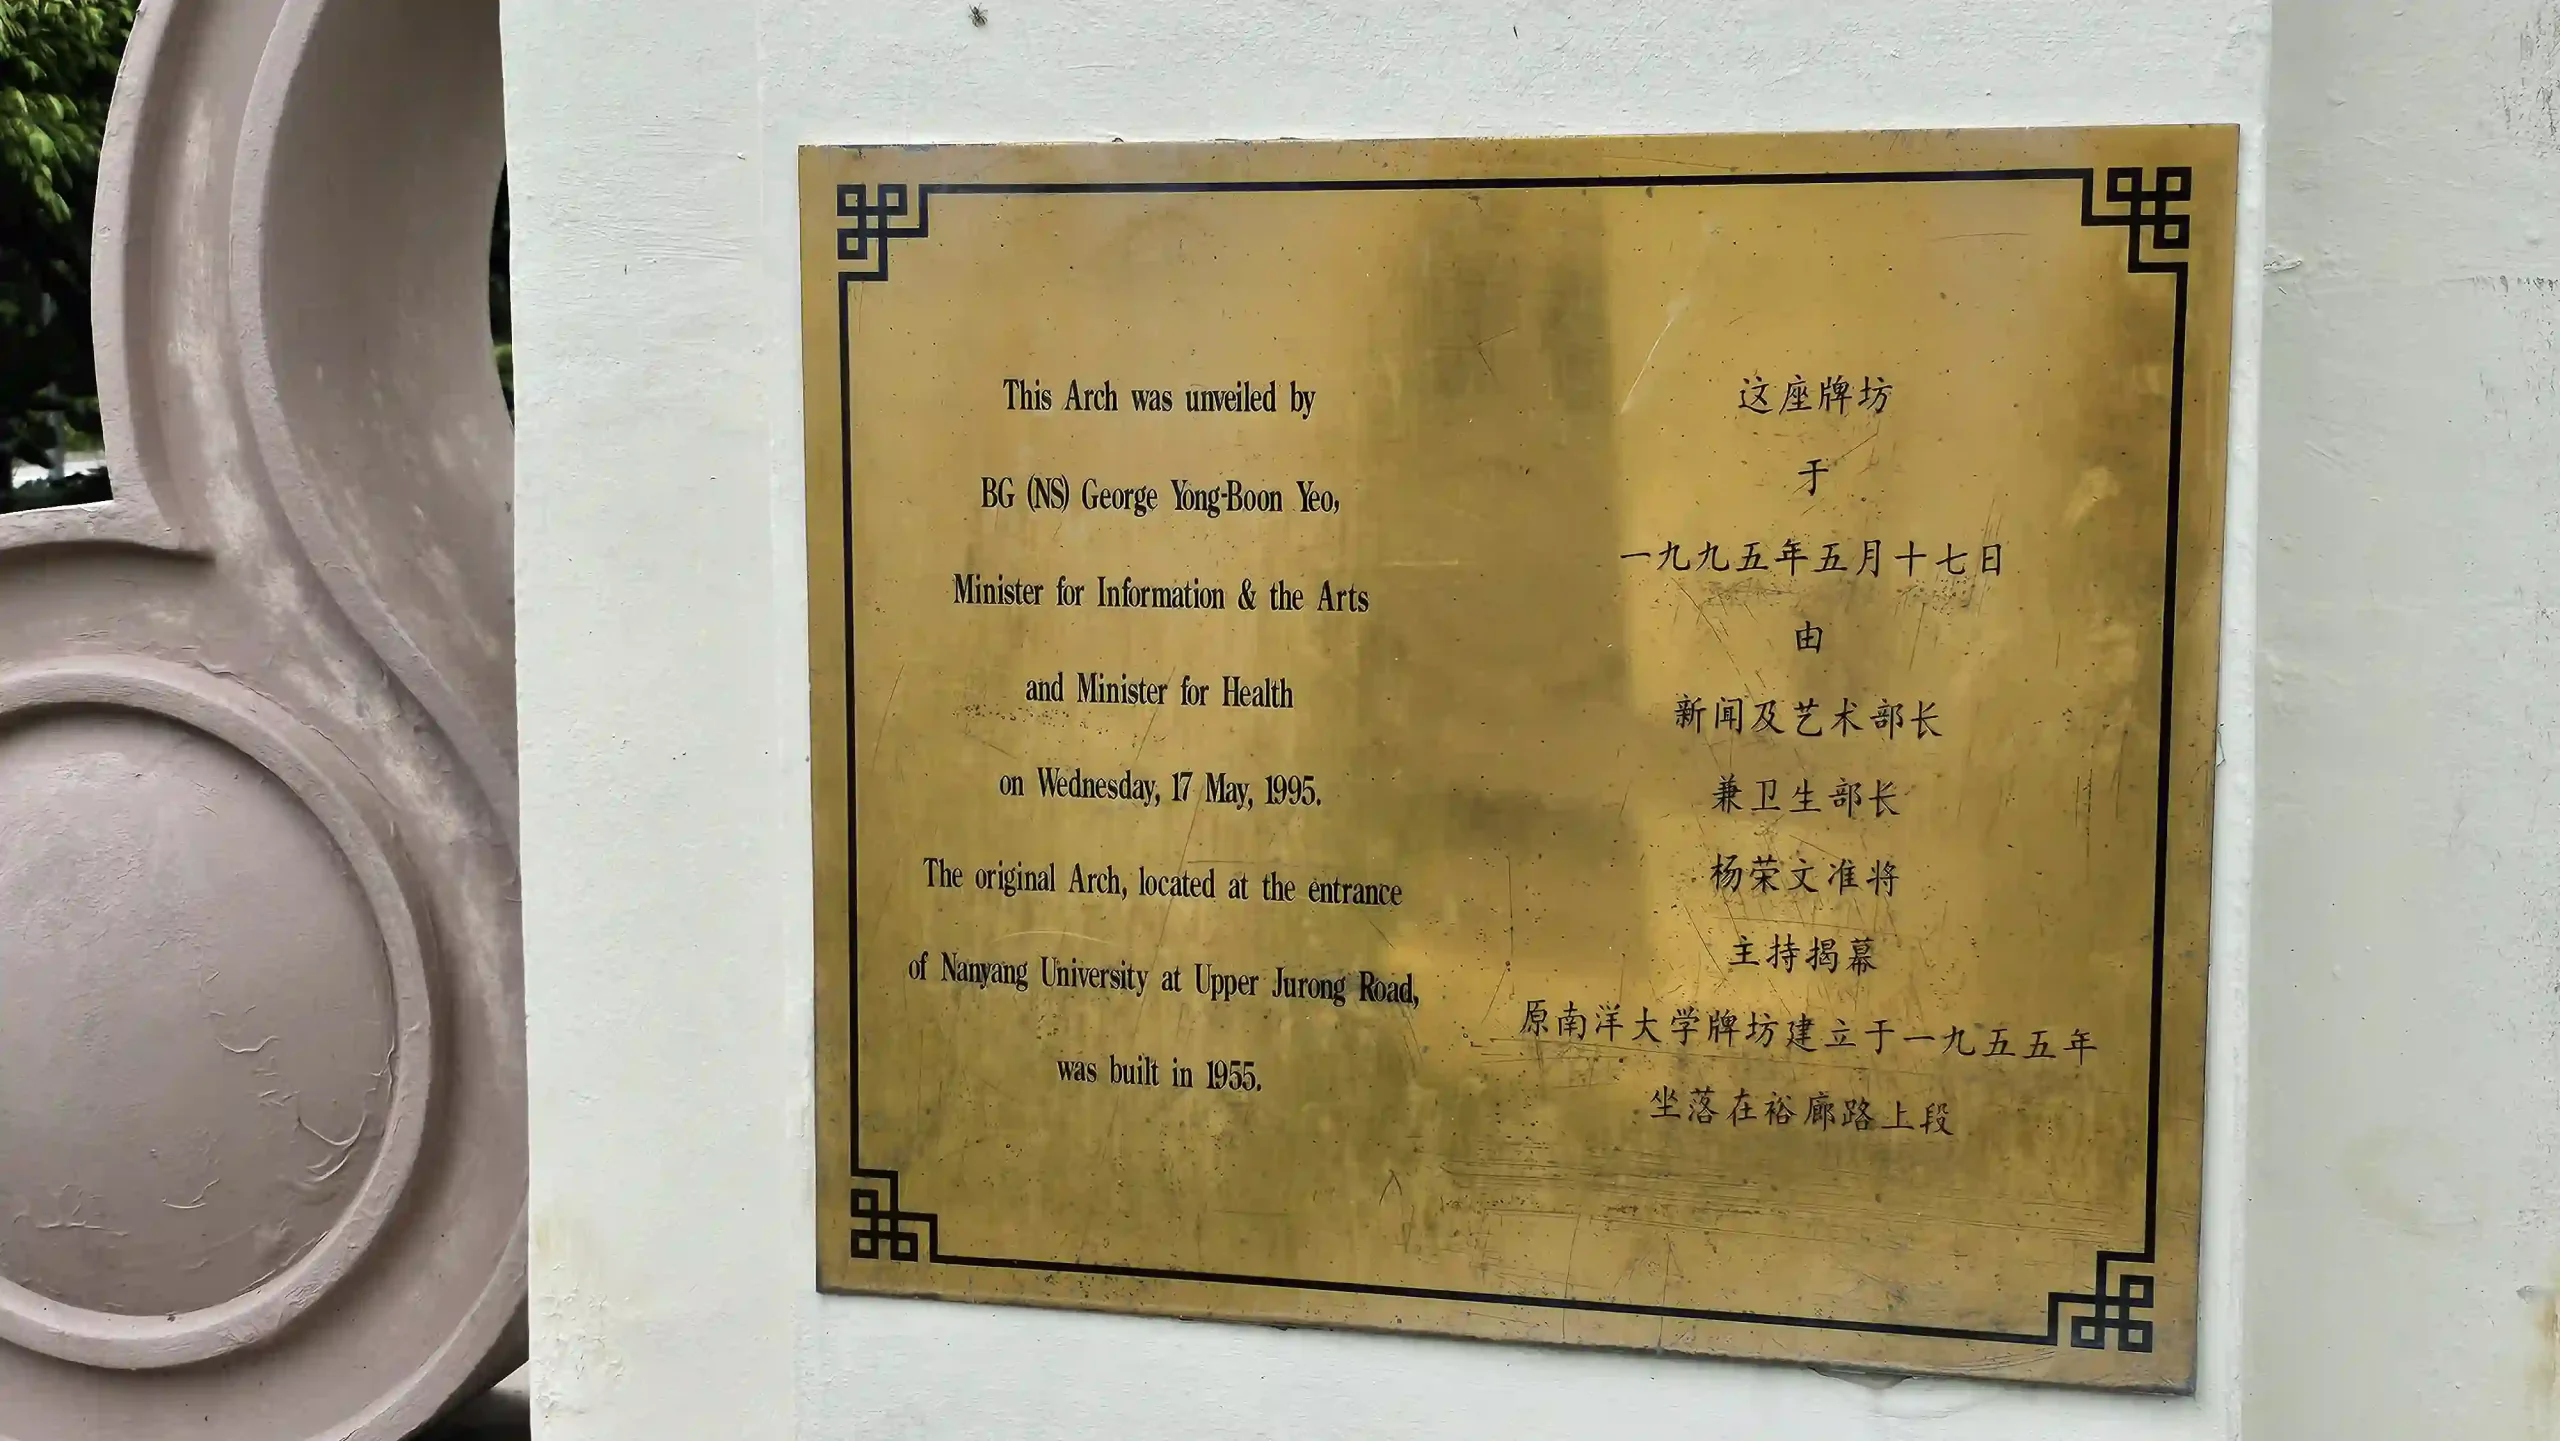 This Arch was unveiled by
BG (NS) George Yong-Boon Yeo,
Minister for Information & the Arts
and Minister for Health
on Wednesday, 17 May, 1995.
The original Arch, located at the entrance
of Nanyang University at Upper Jurong Road,
was built in 1955.
这座牌坊
于
一九九五年五月十七日
由
新闻及艺术部长
兼卫生部长
杨荣文准将
主持揭幕
原南洋大学牌坊建立于一九五五年
坐落在裕廊路上段